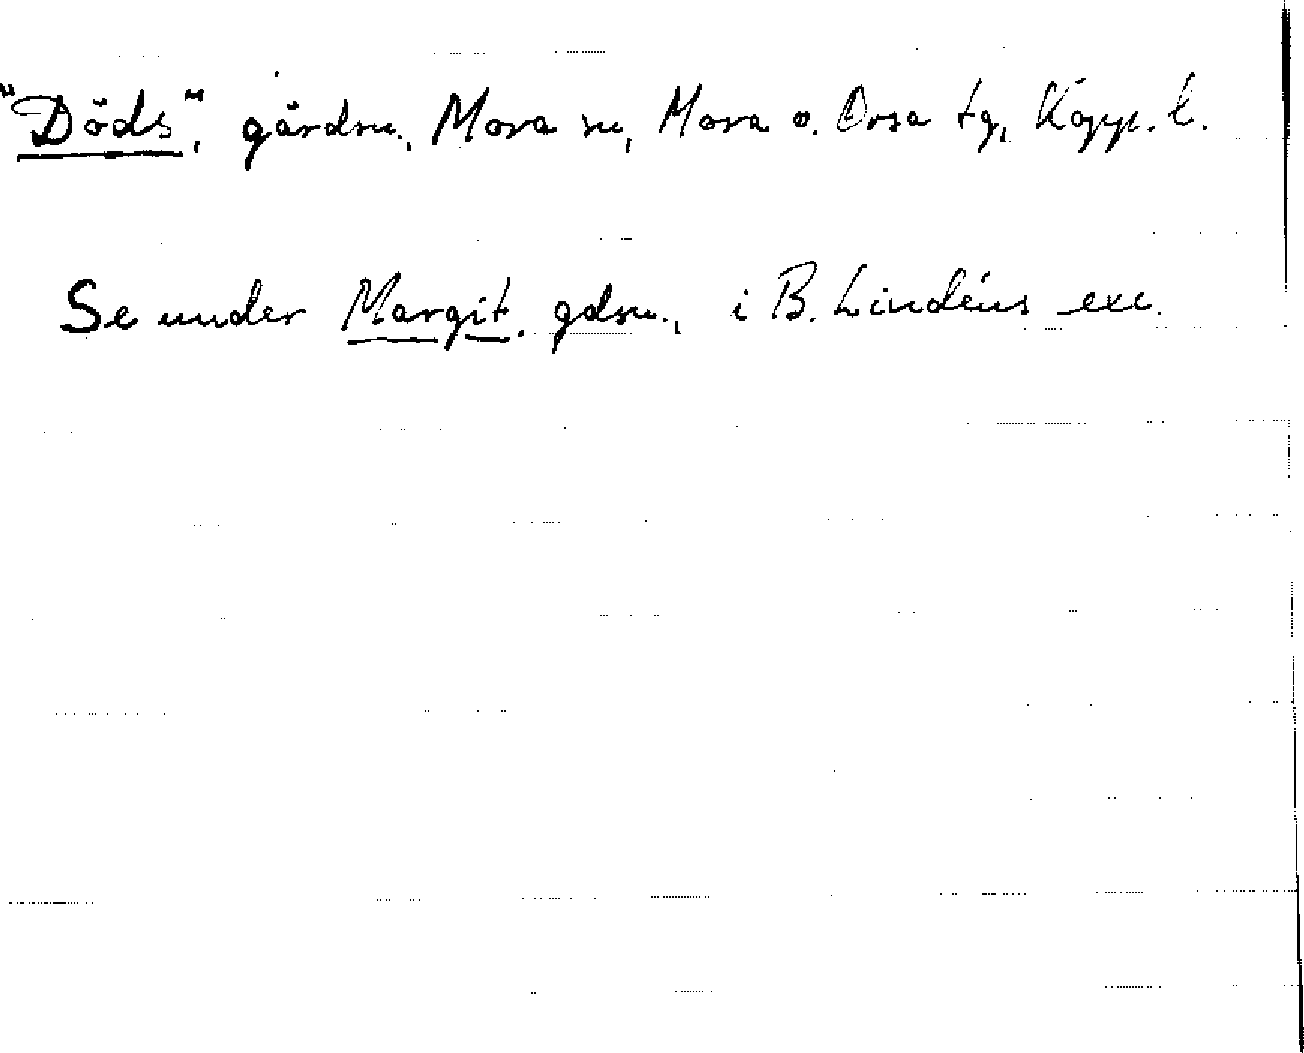 "Döds", gårdsn., Mora sn, Mora o. Orsa tg, Kopp. l.
Se under Margit. gdsn., i B. Lindéns exc.